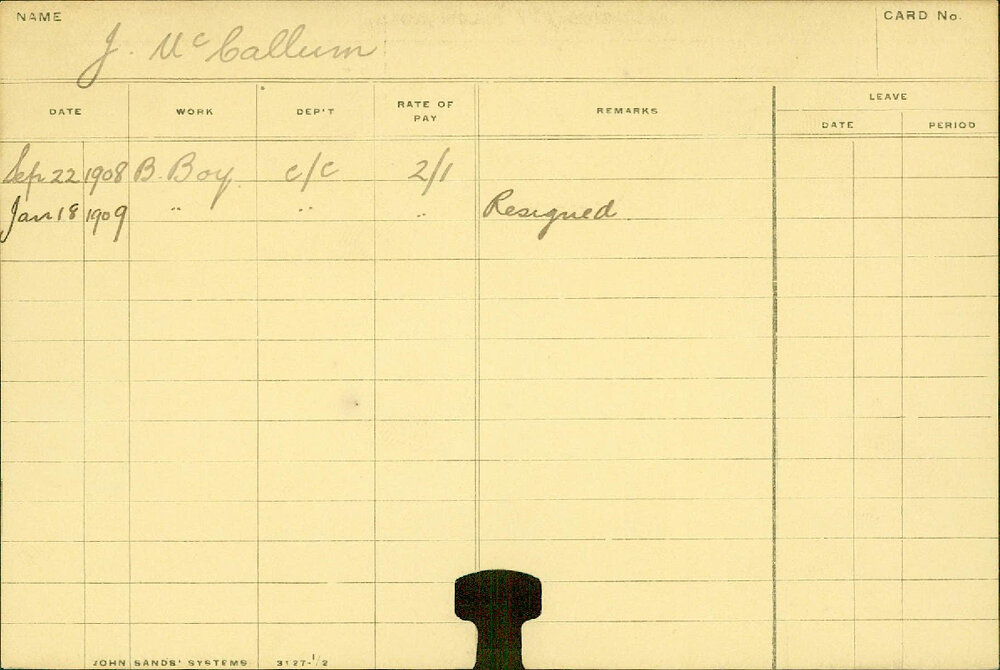 NAME J. McCallum CARD No.
DATE WORK DEP'T RATE OF PAY REMARKS LEAVE
DATE PERIOD
Sep 22 1908 B. Boy c/c 2/1
Jan 18 1909 " " " Resigned
JOHN SANDS' SYSTEMS 3127-1/2